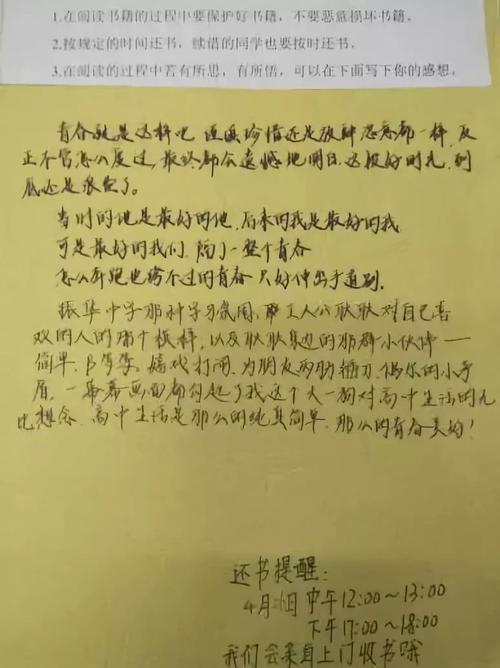 1.在阅读书籍的过程中要保护好书籍，不要恶意损坏书籍。
2.按规定的时间还书，续借的同学也要按时还书。
3.在阅读的过程中若有所思，有所悟，可以在下面写下你的感想。
青春就是这样吧 逗逼珍惜还是放肆恣意都一样，反
正不管怎么度过，最终都会遗憾地明白，这段好时光，到
底还是浪费了。
当时的他是最好的他，后来的我是最好的我
可是最好的我们，隔了一整个青春
怎么奔跑也跨不过的青春 只好伸出手道别.
振华中学那种学习氛围，主人公耿耿对自己喜
欢的人的那个模样，以及耿耿身边的那群小伙伴——
简单. 嬉戏打闹. 为朋友两肋插刀. 偶尔的小矛
盾. 一幕幕画面都勾起了我这个大一狗对高中生活的无
比想念. 高中生活是那么的纯真简单. 那么的青春美好！
还书提醒：
4月 日 中午12:00～13:00
下午17:00～18:00
我们会亲自上门收书哦